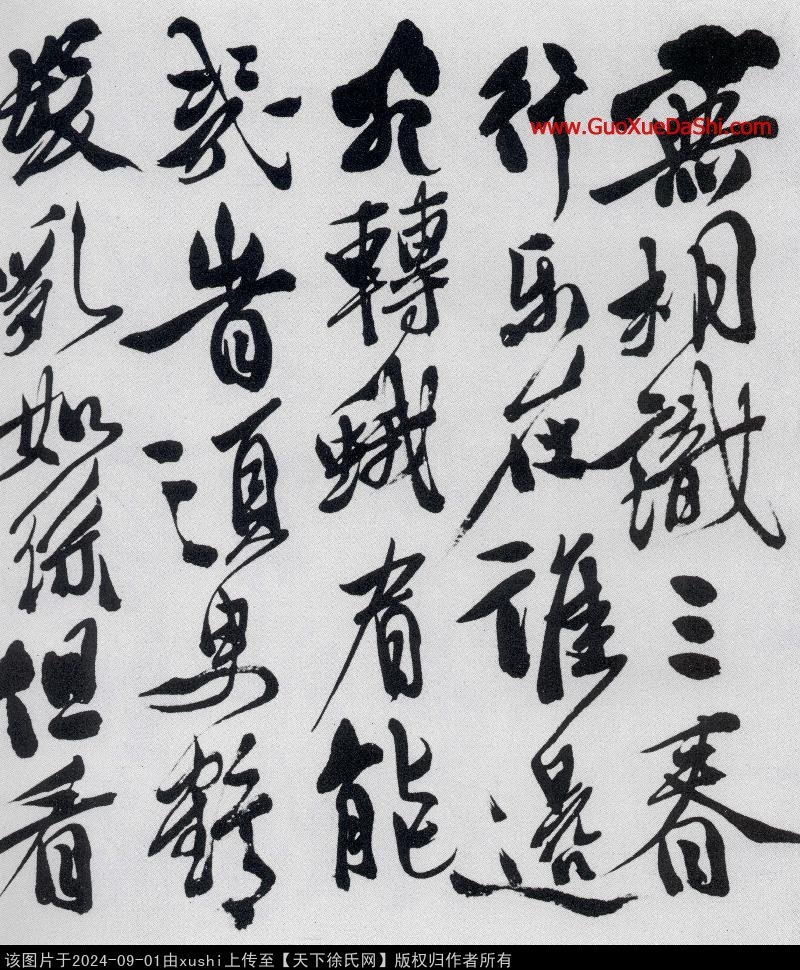 無相識三春
行樂在誰邊
宛轉蛾眉能
幾旹須臾鶴
髮亂如絲但看
www.GuoXueDaShi.com
该图片于2024-09-01由xushi上传至【天下徐氏网】版权归作者所有